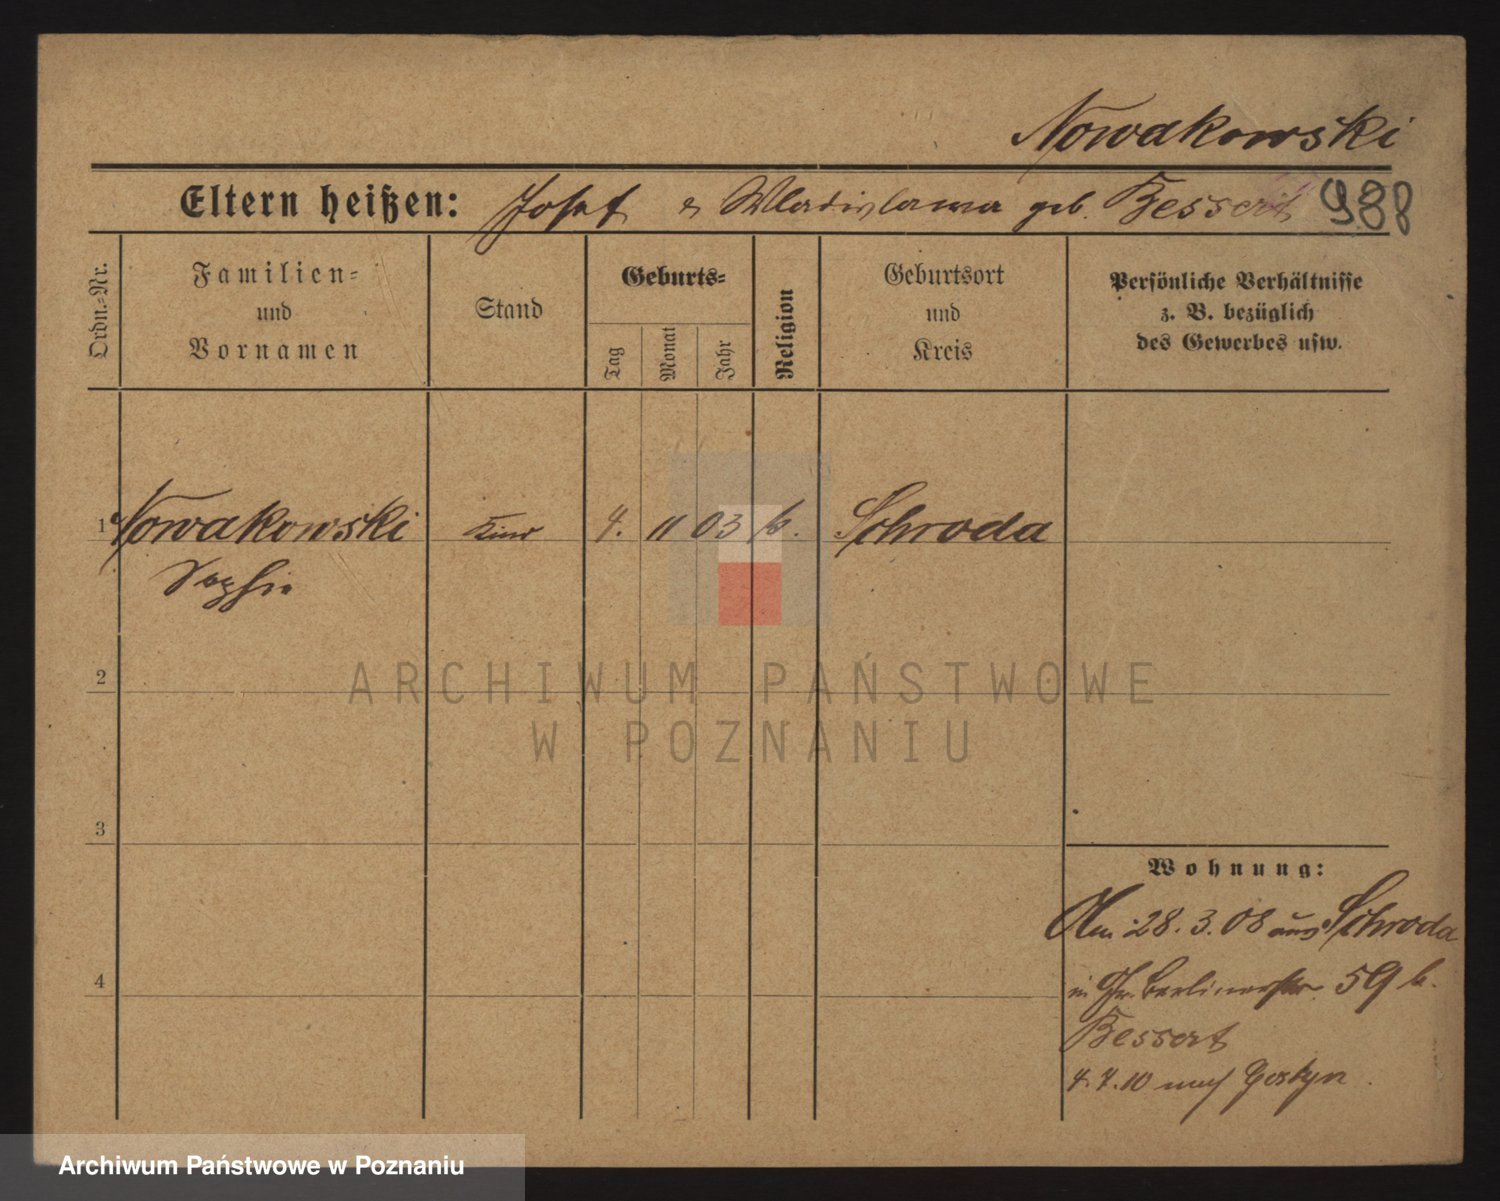 Nowakowski
Eltern heißen: Josef & Wladislawa geb. Bessert 988
Ordn.-Nr.
Familien-
und
Vornamen
Stand
Geburts-
Tag
Monat
Jahr
Religion
Geburtsort
und
Kreis
Persönliche Verhältnisse
z. B. bezüglich
des Gewerbes usw.
1 Nowakowski Kind 4. 11 03 k. Schroda
Sophie
2
ARCHIWUM PAŃSTWOWE
W POZNANIU
3
Wohnung:
Am 28. 3. 08 aus Schroda
in Gr. Berlinerstr. 59 b.
4
Bessert
4. 4. 10 nach Gostyn.
Archiwum Państwowe w Poznaniu